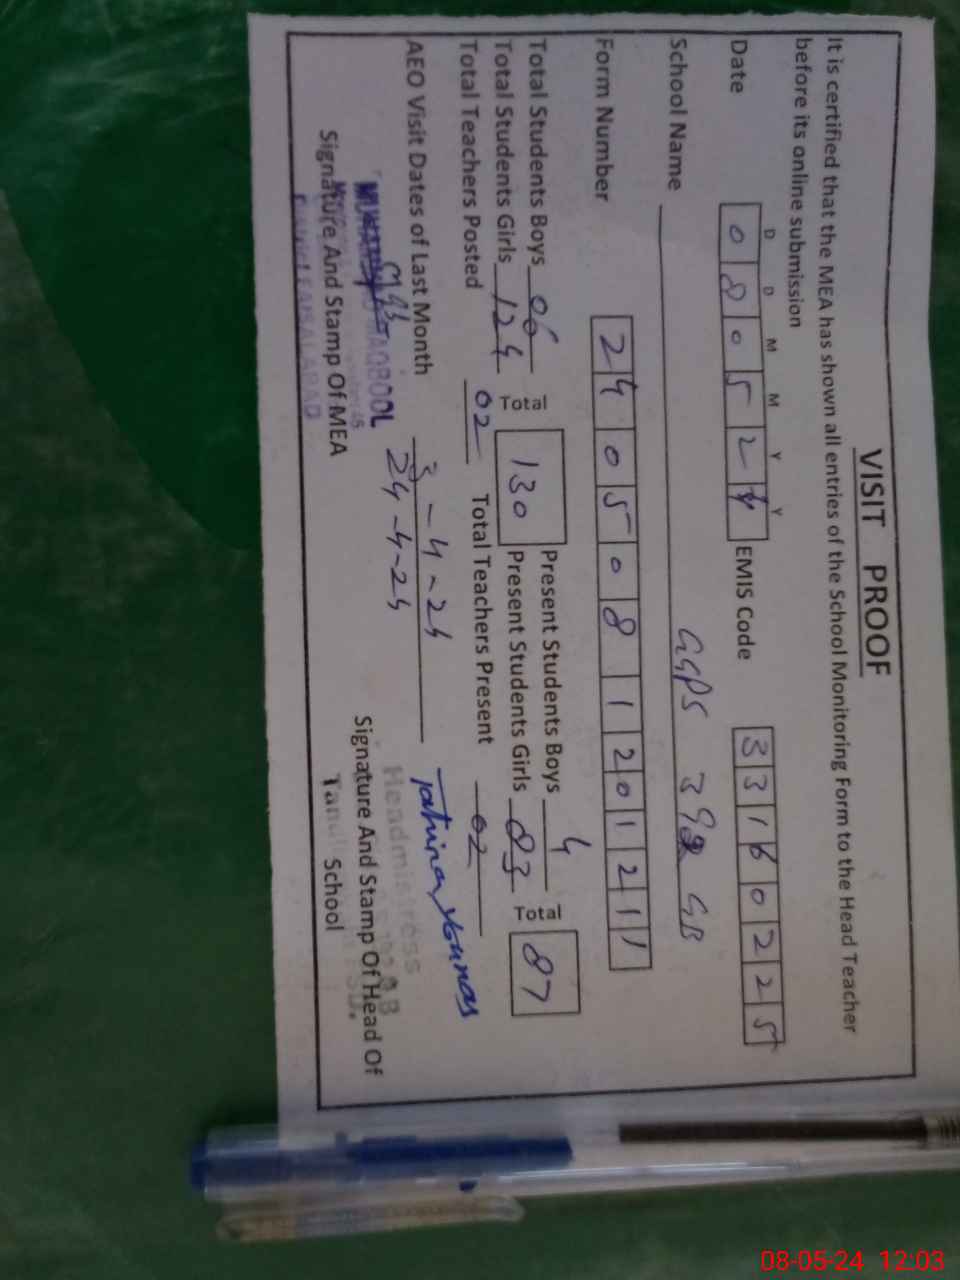 VISIT PROOF
It is certified that the MEA has shown all entries of the School Monitoring Form to the Head Teacher
before its online submission
D D M M Y Y
Date 0 8 0 5 2 4 EMIS Code 3 3 1 6 0 2 2 5
School Name GGPS 392 GB
Form Number 2 4 0 5 0 8 1 2 0 1 2 1 1
Total Students Boys 06 Total 130 Present Students Boys 4 Total 87
Total Students Girls 124 Present Students Girls 83
Total Teachers Posted 02 Total Teachers Present 02
AEO Visit Dates of Last Month 3-4-24
24-4-24
MAQBOOL
FAISALABAD
Signature And Stamp Of MEA
Headmistress
Signature And Stamp Of Head Of
School
08-05-24 12:03